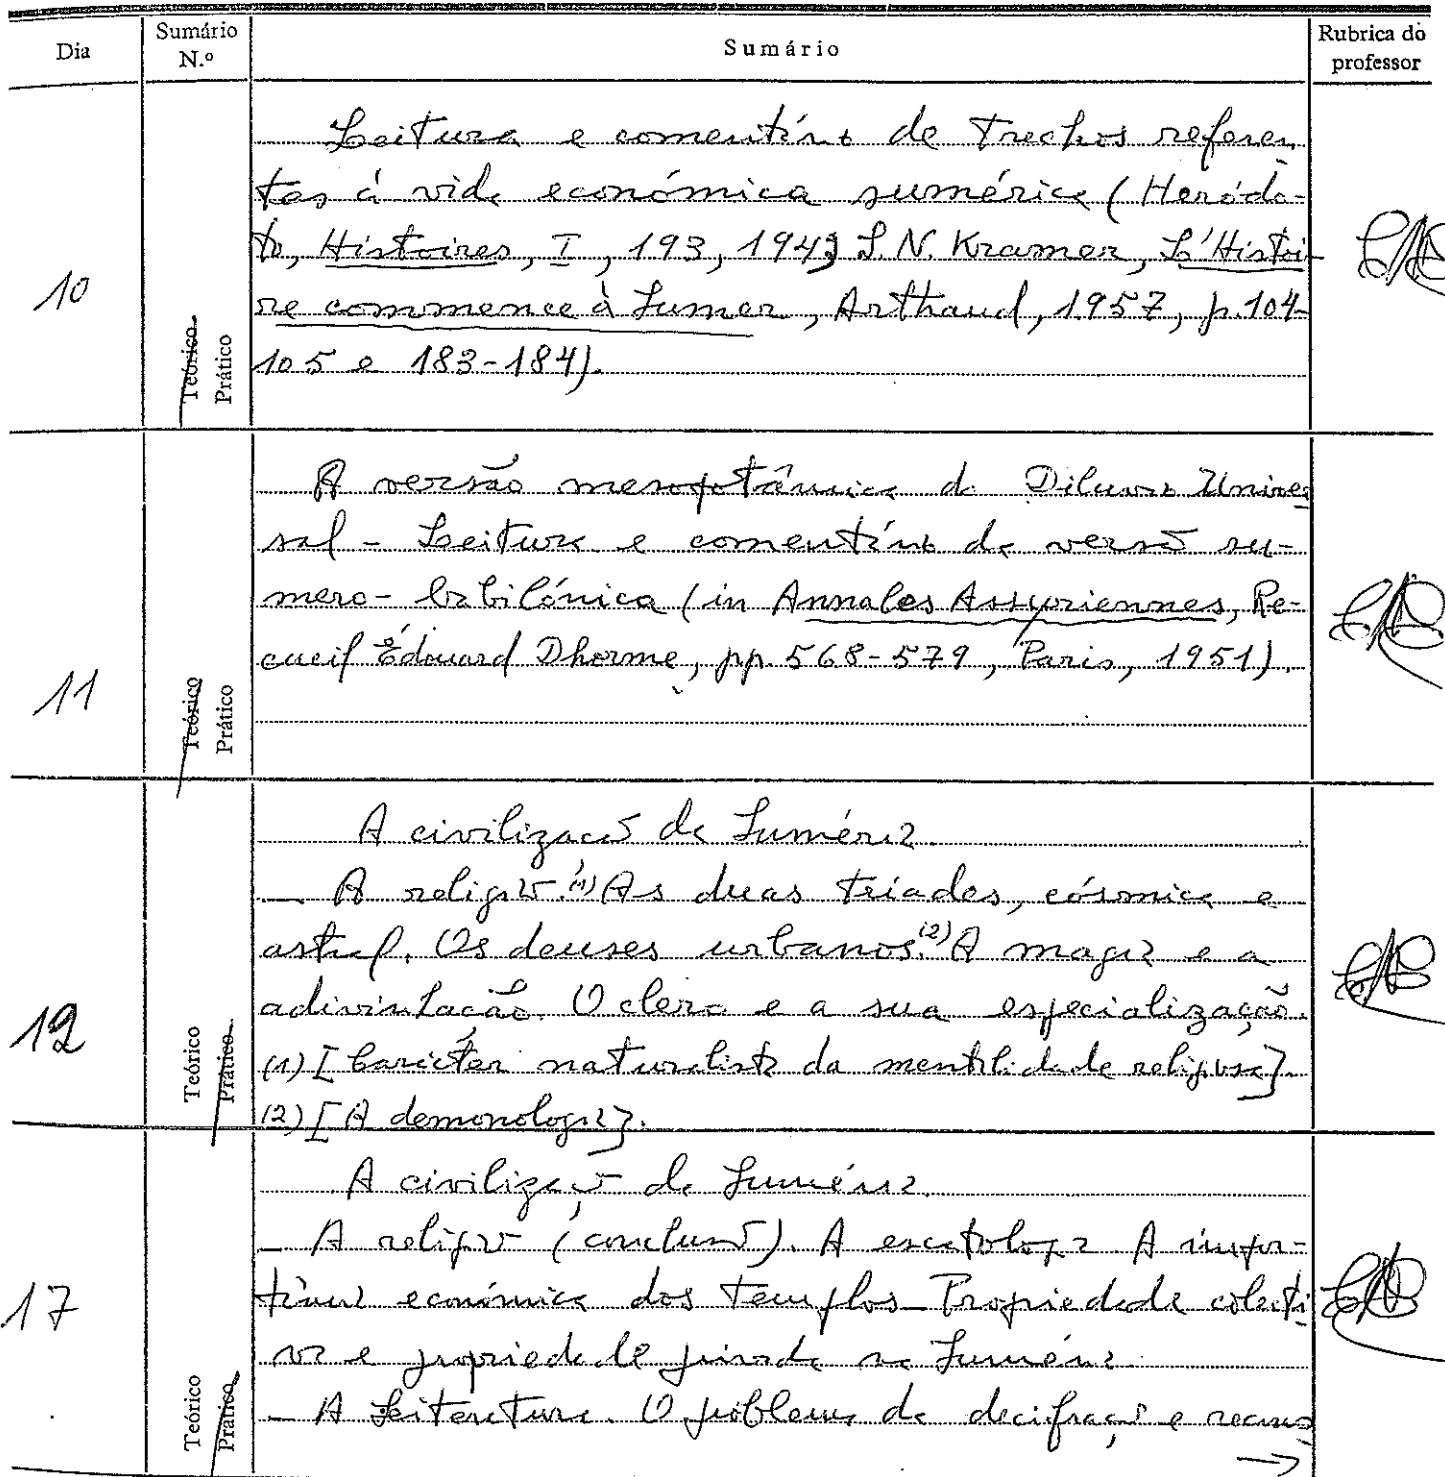 Dia
Sumário N.º
Sumário
Rubrica do professor
10
Teórico
Prático
Leitura e comentário de trechos referen-
tes à vida económica suméria (Heródo-
to, Histoires, I, 193, 194; S. N. Kramer, L'Histoi-
re commence à Sumer, Arthaud, 1957, p. 104-
105 e 183-184).
11
Teórico
Prático
A versão mesopotâmica do Diluvio Univer
sal - Leitura e comentário da versão su-
mero-babilónica (in Annales Assyriennes, Re-
cueil Édouard Dhorme, pp. 568-579, Paris, 1951).
12
Teórico
Prático
A civilização da Suméria.
- A religião. (1) As duas tríades, cósmica e
astral. Os deuses urbanos. (2) A magia e a
adivinhação. O clero e a sua especialização.
(1) [Carácter naturalista da mentalidade religiosa].
(2) [A demonologia].
17
Teórico
Prático
A civilização da Suméria.
- A religião (conclusão). A escatologia. A impor-
tância económica dos templos - Propriedade colecti
va e propriedade privada na Suméria.
- A Leiteratura. O problema da decifração e